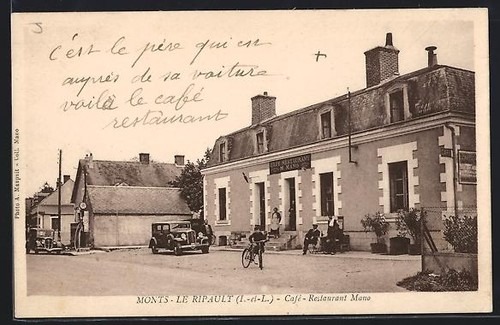 3
c'est le père qui est
auprès de sa voiture
voilà le café
restaurant
CAFÉ RESTAURANT
M MANO
Photo A. Maupuit - Coll. Mano
MONTS - LE RIPAULT (I.-et-L.) - Café - Restaurant Mano